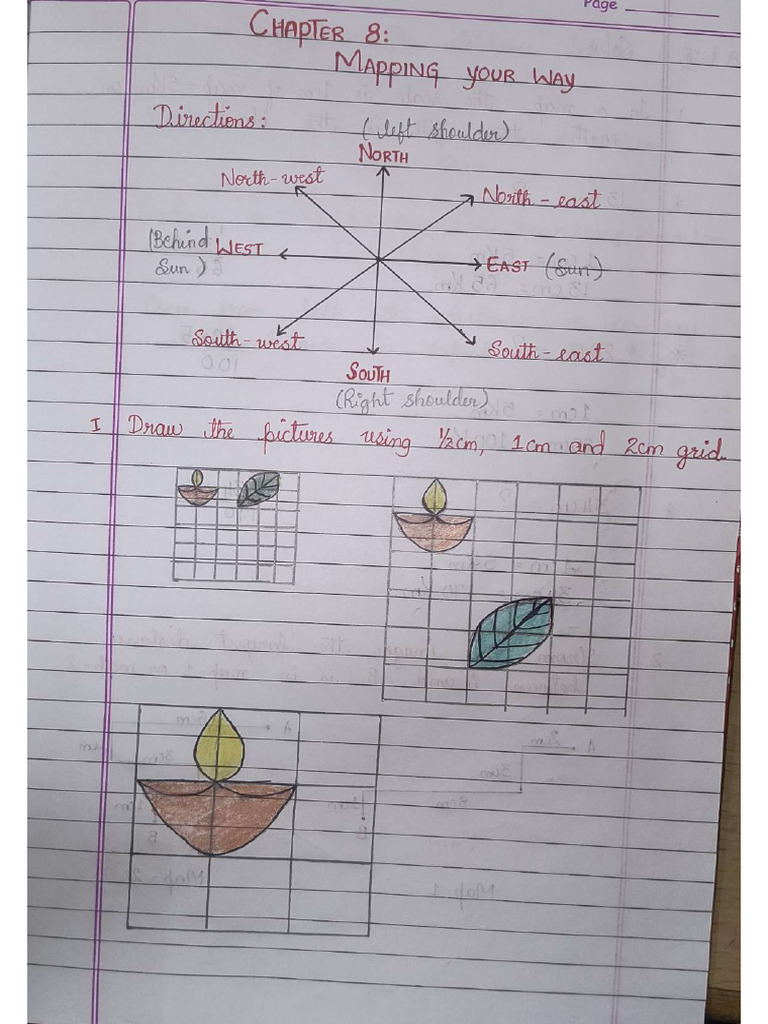 Page
CHAPTER 8:
MAPPING YOUR WAY
Directions:
(left shoulder)
NORTH
North-west
North-east
(Behind Sun)
WEST
EAST (Sun)
South-west
South-east
SOUTH
(Right shoulder)
I Draw the pictures using 1/2cm, 1cm and 2cm grid.